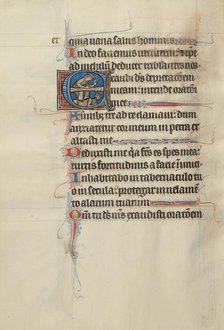 et quia vana salus hominis
In deo faciemus virtutem: et ipse
ad nichilum deducet tribulantes nos
Exaudi deus deprecationem
meam: intende orationi
mee
A finibus terre ad te clamavi: dum
anxiaretur cor meum in petra ex
altasti me
Deduxisti me quia factus es spes mea:
turris fortitudinis a facie inimici
Inhabitabo in tabernaculo tuo
in secula: protegar in velamen
to alarum tuarum
Quoniam tu deus meus exaudisti orationem